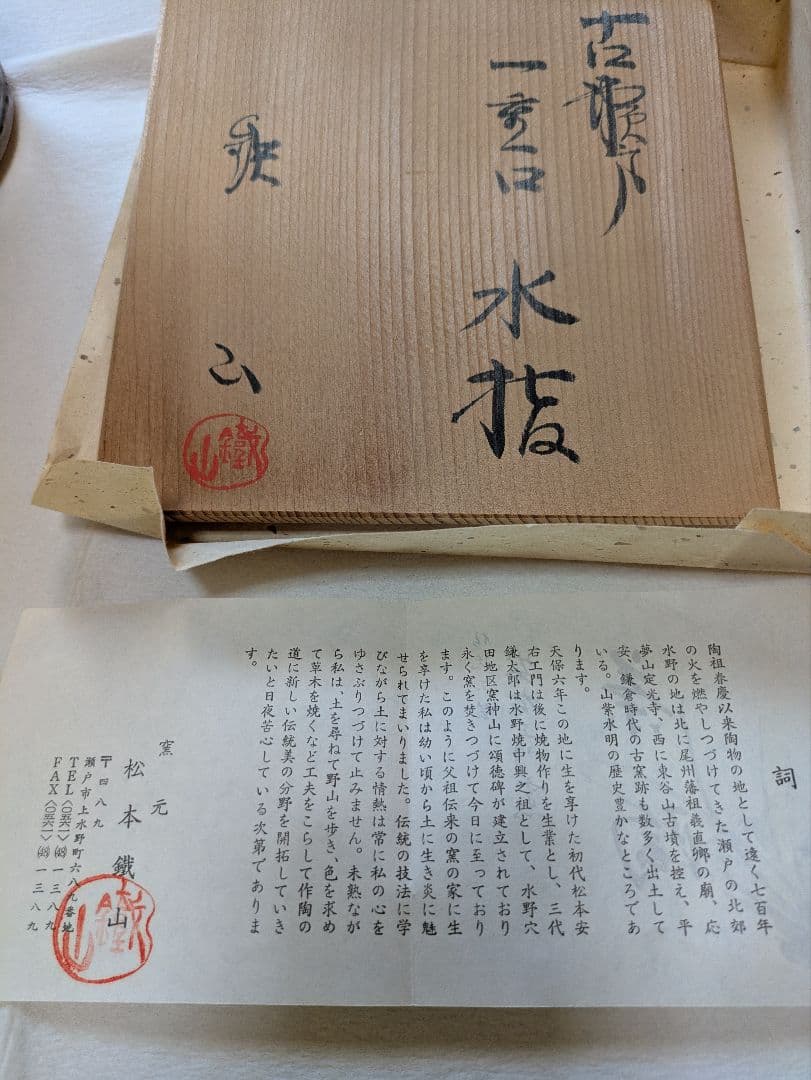 古瀬戸
一重口
水指
鉄山
鐵山
詞
陶祖春慶以来陶物の地として遠く七百年
の火を燃やしつづけてきた瀬戸の北郊
水野の地は北に尾州藩祖義直卿の廟、応
夢山定光寺、西に東谷山古墳を控え、平
安、鎌倉時代の古窯跡も数多く出土して
いる。山紫水明の歴史豊かなところであ
ります。
天保六年この地に生を享けた初代松本安
右エ門は後に焼物作りを生業とし、三代
鎌太郎は水野焼中興之祖として、水野穴
田地区窯神山に頌徳碑が建立されており
永く窯を焚きつづけて今日に至っており
ます。このように父祖伝来の窯の家に生
を享けた私は幼い頃から土に生き炎に魅
せられてまいりました。伝統の技法に学
びながら土に対する情熱は常に私の心を
ゆさぶりつづけて止みません。未熟なが
ら私は、土を尋ねて野山を歩き、色を求め
て草木を焼くなど工夫をこらして作陶の
道に新しい伝統美の分野を開拓していき
たいと日夜苦心している次第でありま
す。
窯元
松本鐵山
〒四八九
瀬戸市上水野町六八九番地
TEL〈〇五六一〉㈣一三八九
FAX〈〇五六一〉㈣一三八九
鐵山